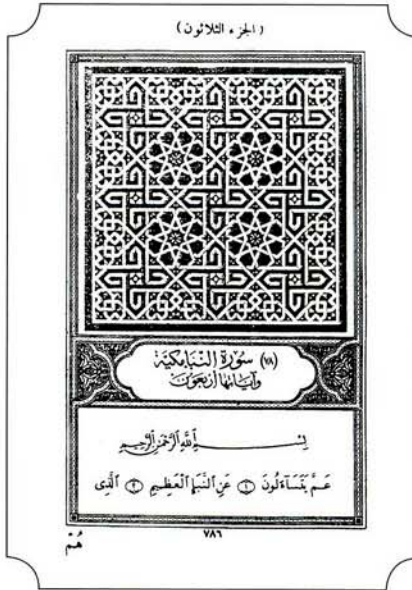 (الجزء الثلاثون)
(٧٨) سُورَةُ النَّبَإِ مَكِّيَّة
وَآيَاتُهَا أَرْبَعُونَ
بِسْمِ اللَّهِ الرَّحْمَٰنِ الرَّحِيمِ
عَمَّ يَتَسَآءَلُونَ ١ عَنِ النَّبَإِ الْعَظِيمِ ٢ الَّذِى
٧٨٦
هُمْ